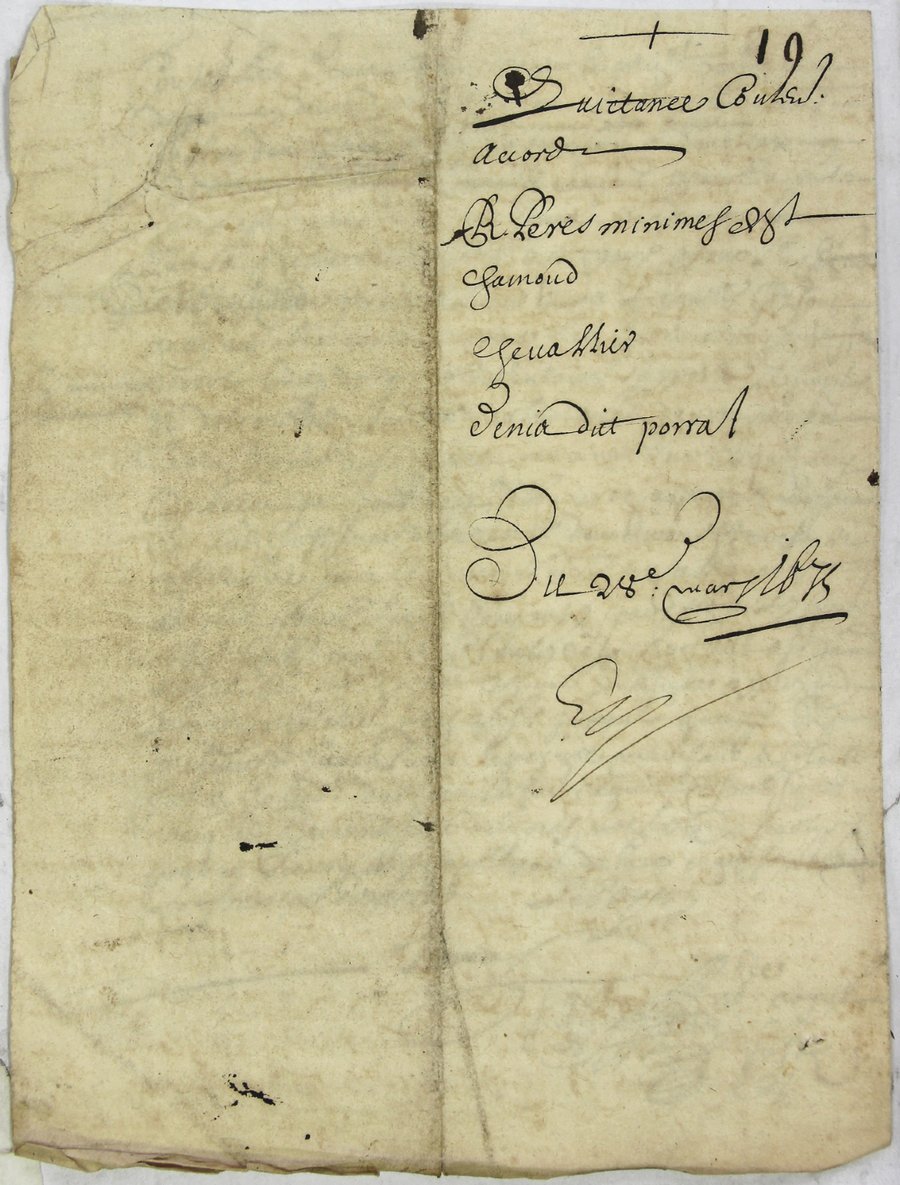 19
Quictance Conten.
accord
R Peres minimes de St
chamond
chevallier
Denia dit porral
Du 28e. mars 1675